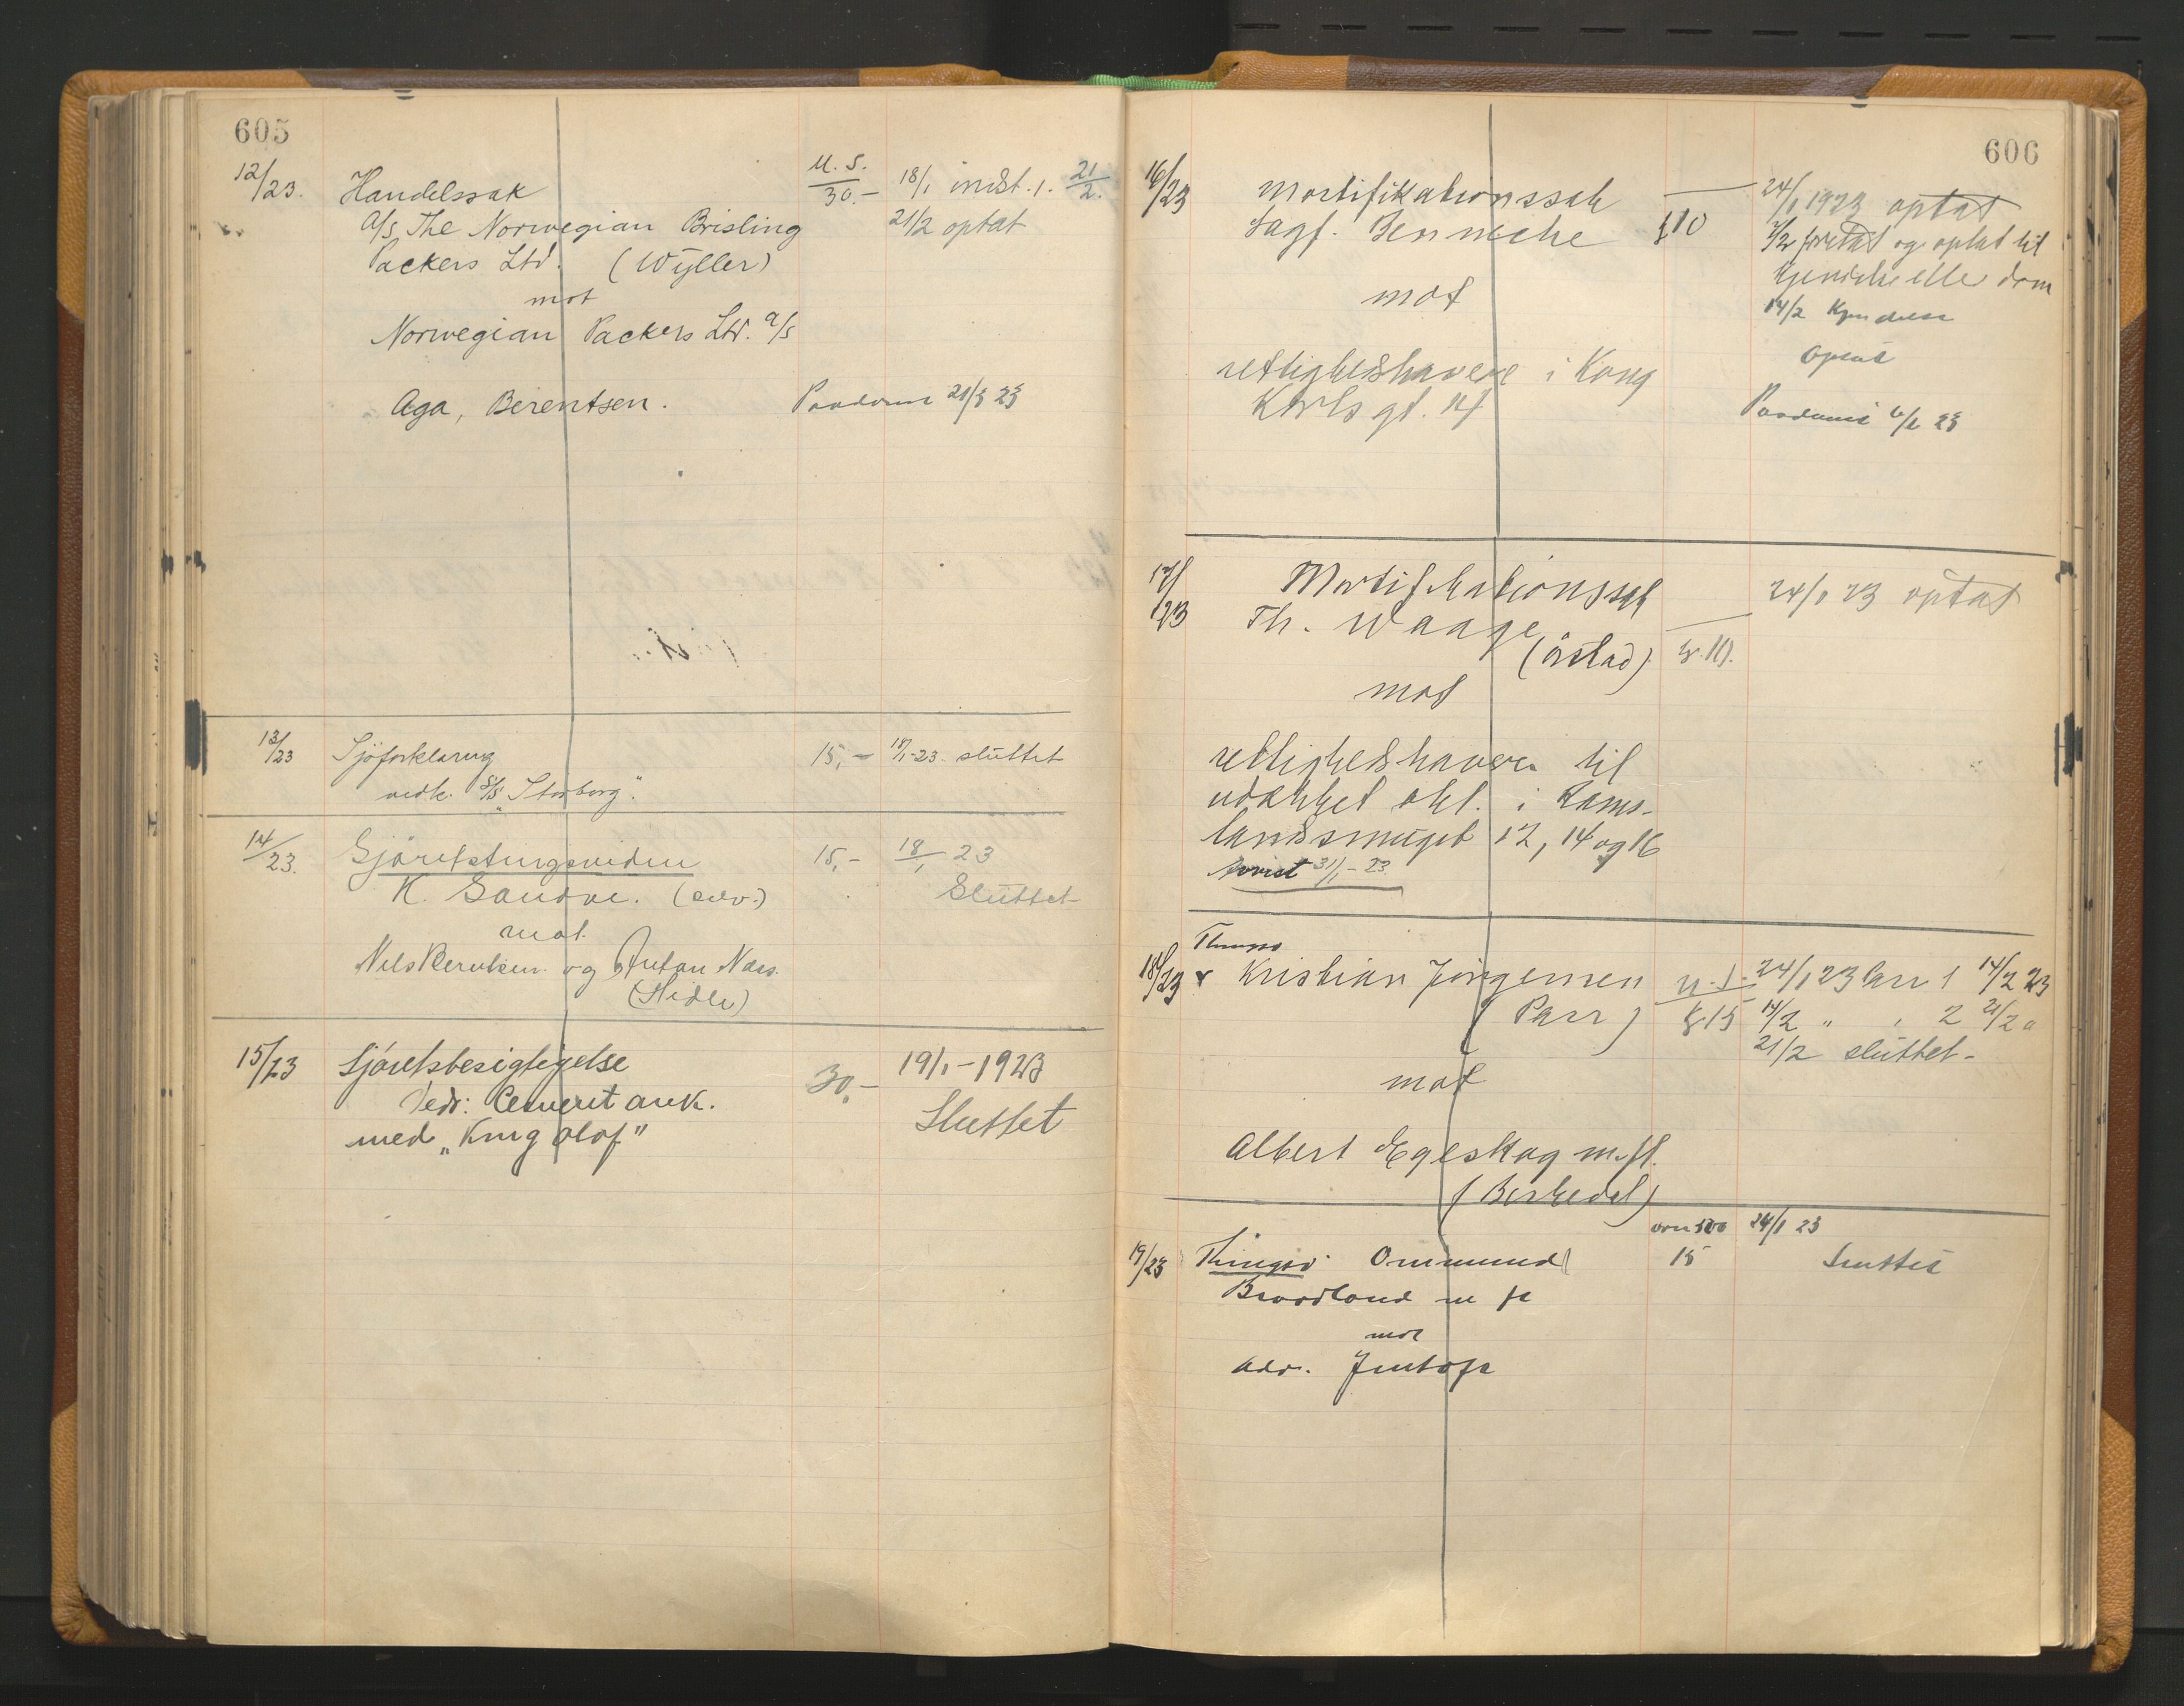 605
12/23. Handelssak U.S. 30.- 18/1 indst. 1. 21/2.
A/S The Norwegian Brisling 21/2 optat
Packers Ltd. (Wyller)
mot
Norwegian Packers Ltd. A/S
Aga, Berentsen. Paadømt 21/3 23
13/23 Sjöforklaring 15,- 18/1-23. sluttet
vedk. S/S "Storborg".
14/23. Sjøretstingsvidne 15,- 18/1 23
K. Sandve. (selv.) Sluttet
mot.
Nils Berntsen og Anton Næss.
(Hidle)
15/23 Sjöretsbesigtigelse 30,- 19/1-1923
Vedr: Cement ank. Sluttet
med "Kong Olof"
606
16/23 Mortifikationssak 24/1 1923 optat
Sagf. Benneche §10 7/2 foretat og optat til
kjendelse eller dom
mot 14/2 Kjendelse
optat
rettighetshavere i Kong
Karls gt. 14 Paadømt 6/2 23
17/23 Mortifikationssak 24/1 23 optat
Th. Waage
(Østad) kr. 10.
mot
rettighetshaver til
udækket obl. i Rams-
landssmuget 12, 14 og 16
Avvist 31/1-23
Thingsv
18/23 Kristian Jörgensen U.S. 24/1 23 Parr 1 14/2 23
(Parr) kr 15 14/2 " , 2 21/2
21/2 sluttet-
mot
Albert Egeskog m.fl.
(Birkedal)
24/1 23
19/23 Thingsv. Ommund 15 Sluttet
Braadland m fl
mot
Adv. Jintoft